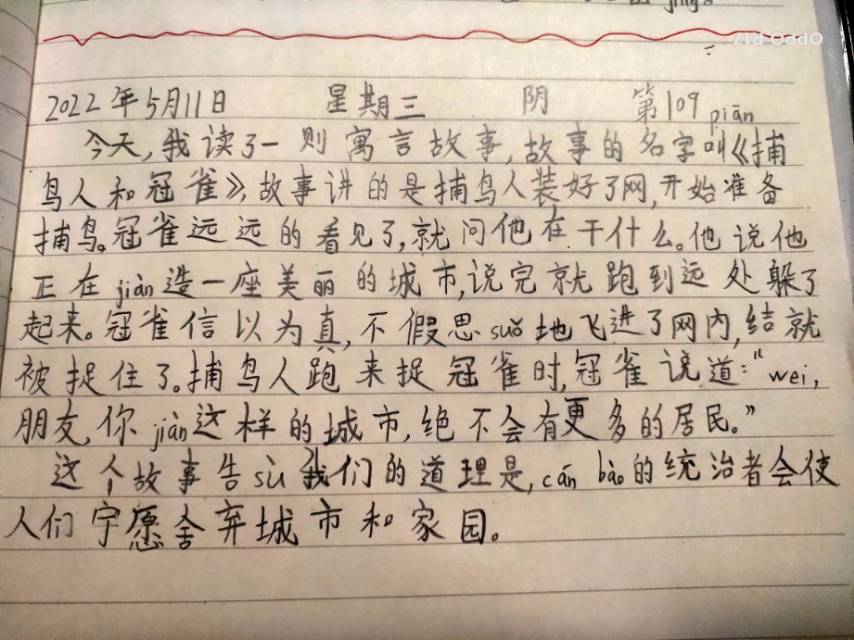 jīng。
OPPO R17
2022年5月11日 星期三 阴 第109piān
今天,我读了一则寓言故事,故事的名字叫《捕
鸟人和冠雀》,故事讲的是捕鸟人装好了网,开始准备
捕鸟。冠雀远远的看见了,就问他在干什么。他说他
正在jiàn造一座美丽的城市,说完就跑到远处躲了
起来。冠雀信以为真,不假思suǒ地飞进了网内,结就
被捉住了。捕鸟人跑来捉冠雀时,冠雀说道:“wei,
朋友,你jiàn这样的城市,绝不会有更多的居民。”
这个故事告sù我们的道理是,cán bào的统治者会使
人们宁愿舍弃城市和家园。